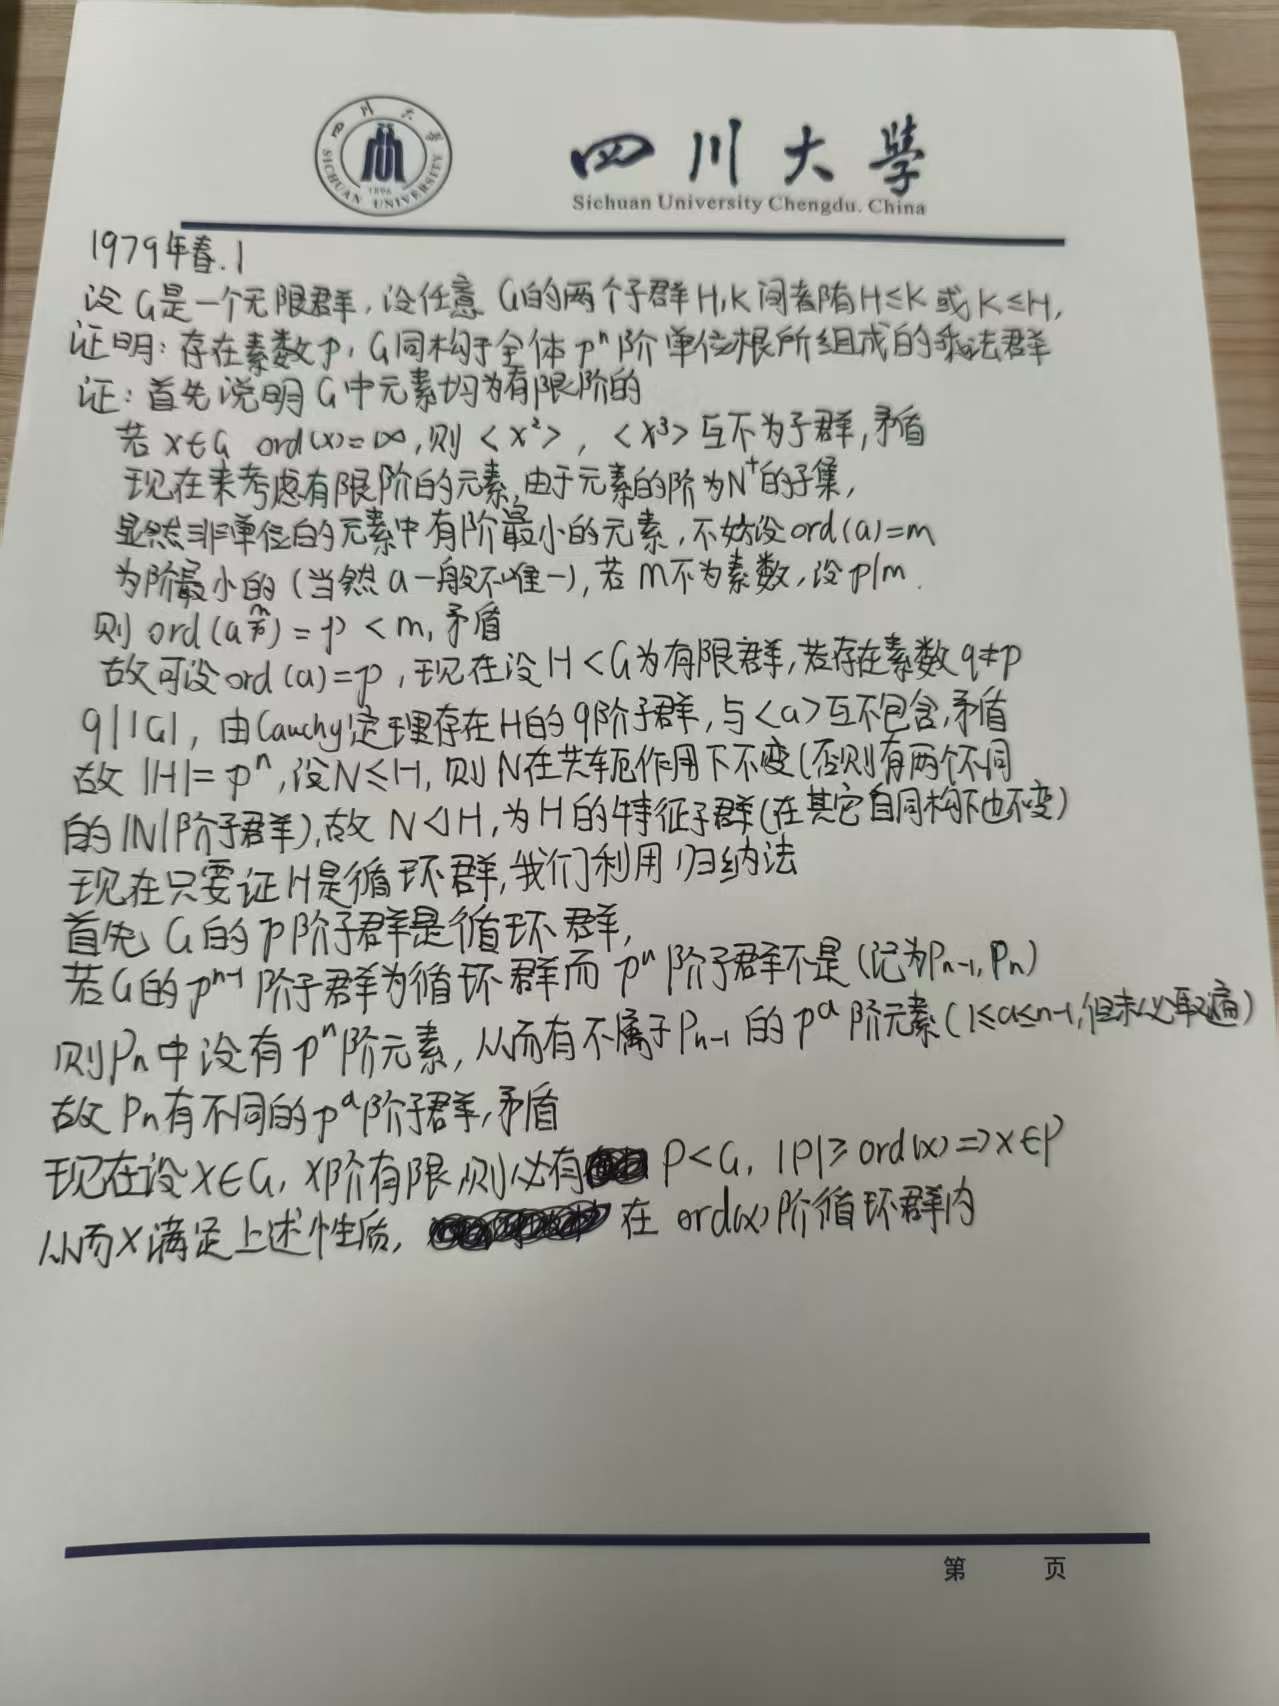 四川大学
SICHUAN UNIVERSITY
1896
四川大學
Sichuan University Chengdu. China
1979年春.1
设G是一个无限群,设任意G的两个子群H,K间都有H≤K或K≤H,
证明:存在素数p,G同构于全体pⁿ阶单位根所组成的乘法群
证:首先说明G中元素均为有限阶的
若x∈G ord(x)=∞,则<x²>,<x³>互不为子群,矛盾
现在来考虑有限阶的元素,由于元素的阶为N⁺的子集,
显然非单位的元素中有阶最小的元素,不妨设ord(a)=m
为阶最小的(当然a一般不唯一),若m不为素数,设p|m.
则ord(a^{m/p})=p<m,矛盾
故可设ord(a)=p,现在设H<G为有限群,若存在素数q≠p
q||G|,由Cauchy定理存在H的q阶子群,与<a>互不包含,矛盾
故|H|=pⁿ,设N≤H,则N在共轭作用下不变(否则有两个不同
的|N|阶子群),故N◁H,为H的特征子群(在其它自同构下也不变)
现在只要证H是循环群,我们利用归纳法
首先G的p阶子群是循环群,
若G的pⁿ⁻¹阶子群为循环群而pⁿ阶子群不是(记为Pn-1,Pn)
则Pn中没有pⁿ阶元素,从而有不属于Pn-1的pᵃ阶元素(1≤a≤n-1,但未必取遍)
故Pn有不同的pᵃ阶子群,矛盾
现在设x∈G,x阶有限,则必有P<G,|P|≥ord(x)=>x∈P
从而x满足上述性质,在ord(x)阶循环群内
第 页